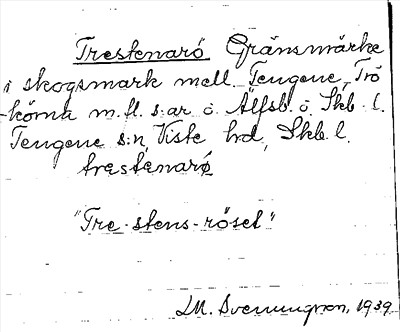 Trestenarö Gränsmärke
i skogsmark mell. Tengene, Trö
-körna m.fl. s:ar o. Älfsb. o. Skb. l.
Tengene s:n, Viste hd, Skb. l.
trestenarø
"Tre-stens-röset"
I.M. Svenungson, 1939